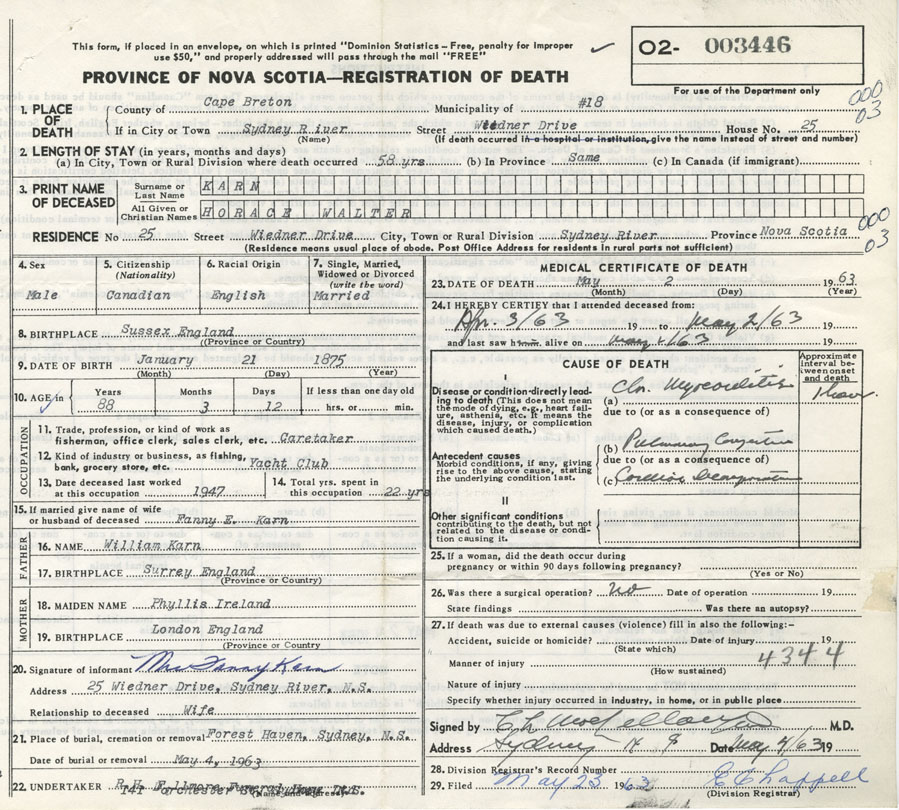 This form, if placed in an envelope, on which is printed "Dominion Statistics – Free, penalty for improper
use $50," and properly addressed will pass through the mail "FREE"
O2- 003446
For use of the Department only
PROVINCE OF NOVA SCOTIA—REGISTRATION OF DEATH
000
03
1. PLACE OF DEATH County of Cape Breton Municipality of #18
If in City or Town Sydney River Street Wiedner Drive House No. 25
(Name) (If death occurred in a hospital or institution, give the name instead of street and number)
2. LENGTH OF STAY (in years, months and days)
(a) In City, Town or Rural Division where death occurred 58 yrs (b) In Province Same (c) In Canada (if immigrant)
3. PRINT NAME OF DECEASED Surname or Last Name KARN
All Given or Christian Names HORACE WALTER
000
03
RESIDENCE No 25 Street Wiedner Drive City, Town or Rural Division Sydney River Province Nova Scotia
(Residence means usual place of abode. Post Office Address for residents in rural parts not sufficient)
4. Sex 5. Citizenship (Nationality) 6. Racial Origin 7. Single, Married, Widowed or Divorced (write the word)
Male Canadian English Married
8. BIRTHPLACE Sussex England
(Province or Country)
9. DATE OF BIRTH January 21 1875
(Month) (Day) (Year)
10. AGE in Years Months Days If less than one day old
88 3 12 hrs. or min.
OCCUPATION
11. Trade, profession, or kind of work as
fisherman, office clerk, sales clerk, etc. Caretaker
12. Kind of industry or business, as fishing,
bank, grocery store, etc. Yacht Club
13. Date deceased last worked at this occupation 1947 14. Total yrs. spent in this occupation 22 yrs
15. If married give name of wife
or husband of deceased Fanny E. Karn
FATHER
16. NAME William Karn
17. BIRTHPLACE Surrey England
(Province or Country)
MOTHER
18. MAIDEN NAME Phyllis Ireland
19. BIRTHPLACE London England
(Province or Country
20. Signature of informant Mrs Fanny Karn
Address 25 Wiedner Drive, Sydney River, N.S.
Relationship to deceased Wife
21. Place of burial, cremation or removal Forest Haven, Sydney, N.S.
Date of burial or removal May 4, 1963
22. UNDERTAKER R.H. Fillmore Funeral Home Ltd.
141 Dorchester St.
(Name and Address)
MEDICAL CERTIFICATE OF DEATH
23. DATE OF DEATH May 2 19 63
(Month) (Day) (Year)
24. I HEREBY CERTIFY that I attended deceased from:
Apr. 3/63 19 to May 2/63 19
and last saw him alive on May 1/63 19
CAUSE OF DEATH
Approximate interval between onset and death
I
Disease or condition directly leading to death (This does not mean the mode of dying, e.g., heart failure, asthenia, etc. It means the disease, injury, or complication which caused death.)
(a) Chr. Myocarditis 1 hour
due to (or as a consequence of)
Antecedent causes
Morbid conditions, if any, giving rise to the above cause, stating the underlying condition last.
(b) Pulmonary Congestion
due to (or as a consequence of)
(c) Cardiac
II
Other significant conditions
contributing to the death, but not related to the disease or condition causing it.
25. If a woman, did the death occur during
pregnancy or within 90 days following pregnancy?
(Yes or No)
26. Was there a surgical operation? No Date of operation 19
State findings Was there an autopsy?
27. If death was due to external causes (violence) fill in also the following:–
Accident, suicide or homicide? Date of injury 19
(State which)
Manner of injury 4344
(How sustained)
Nature of injury
Specify whether injury occurred in industry, in home, or in public place
Signed by M.D.
Address Sydney N S Date May 4/63 19
28. Division Registrar's Record Number
29. Filed May 23 1963 E Chappell
(Division Registrar)